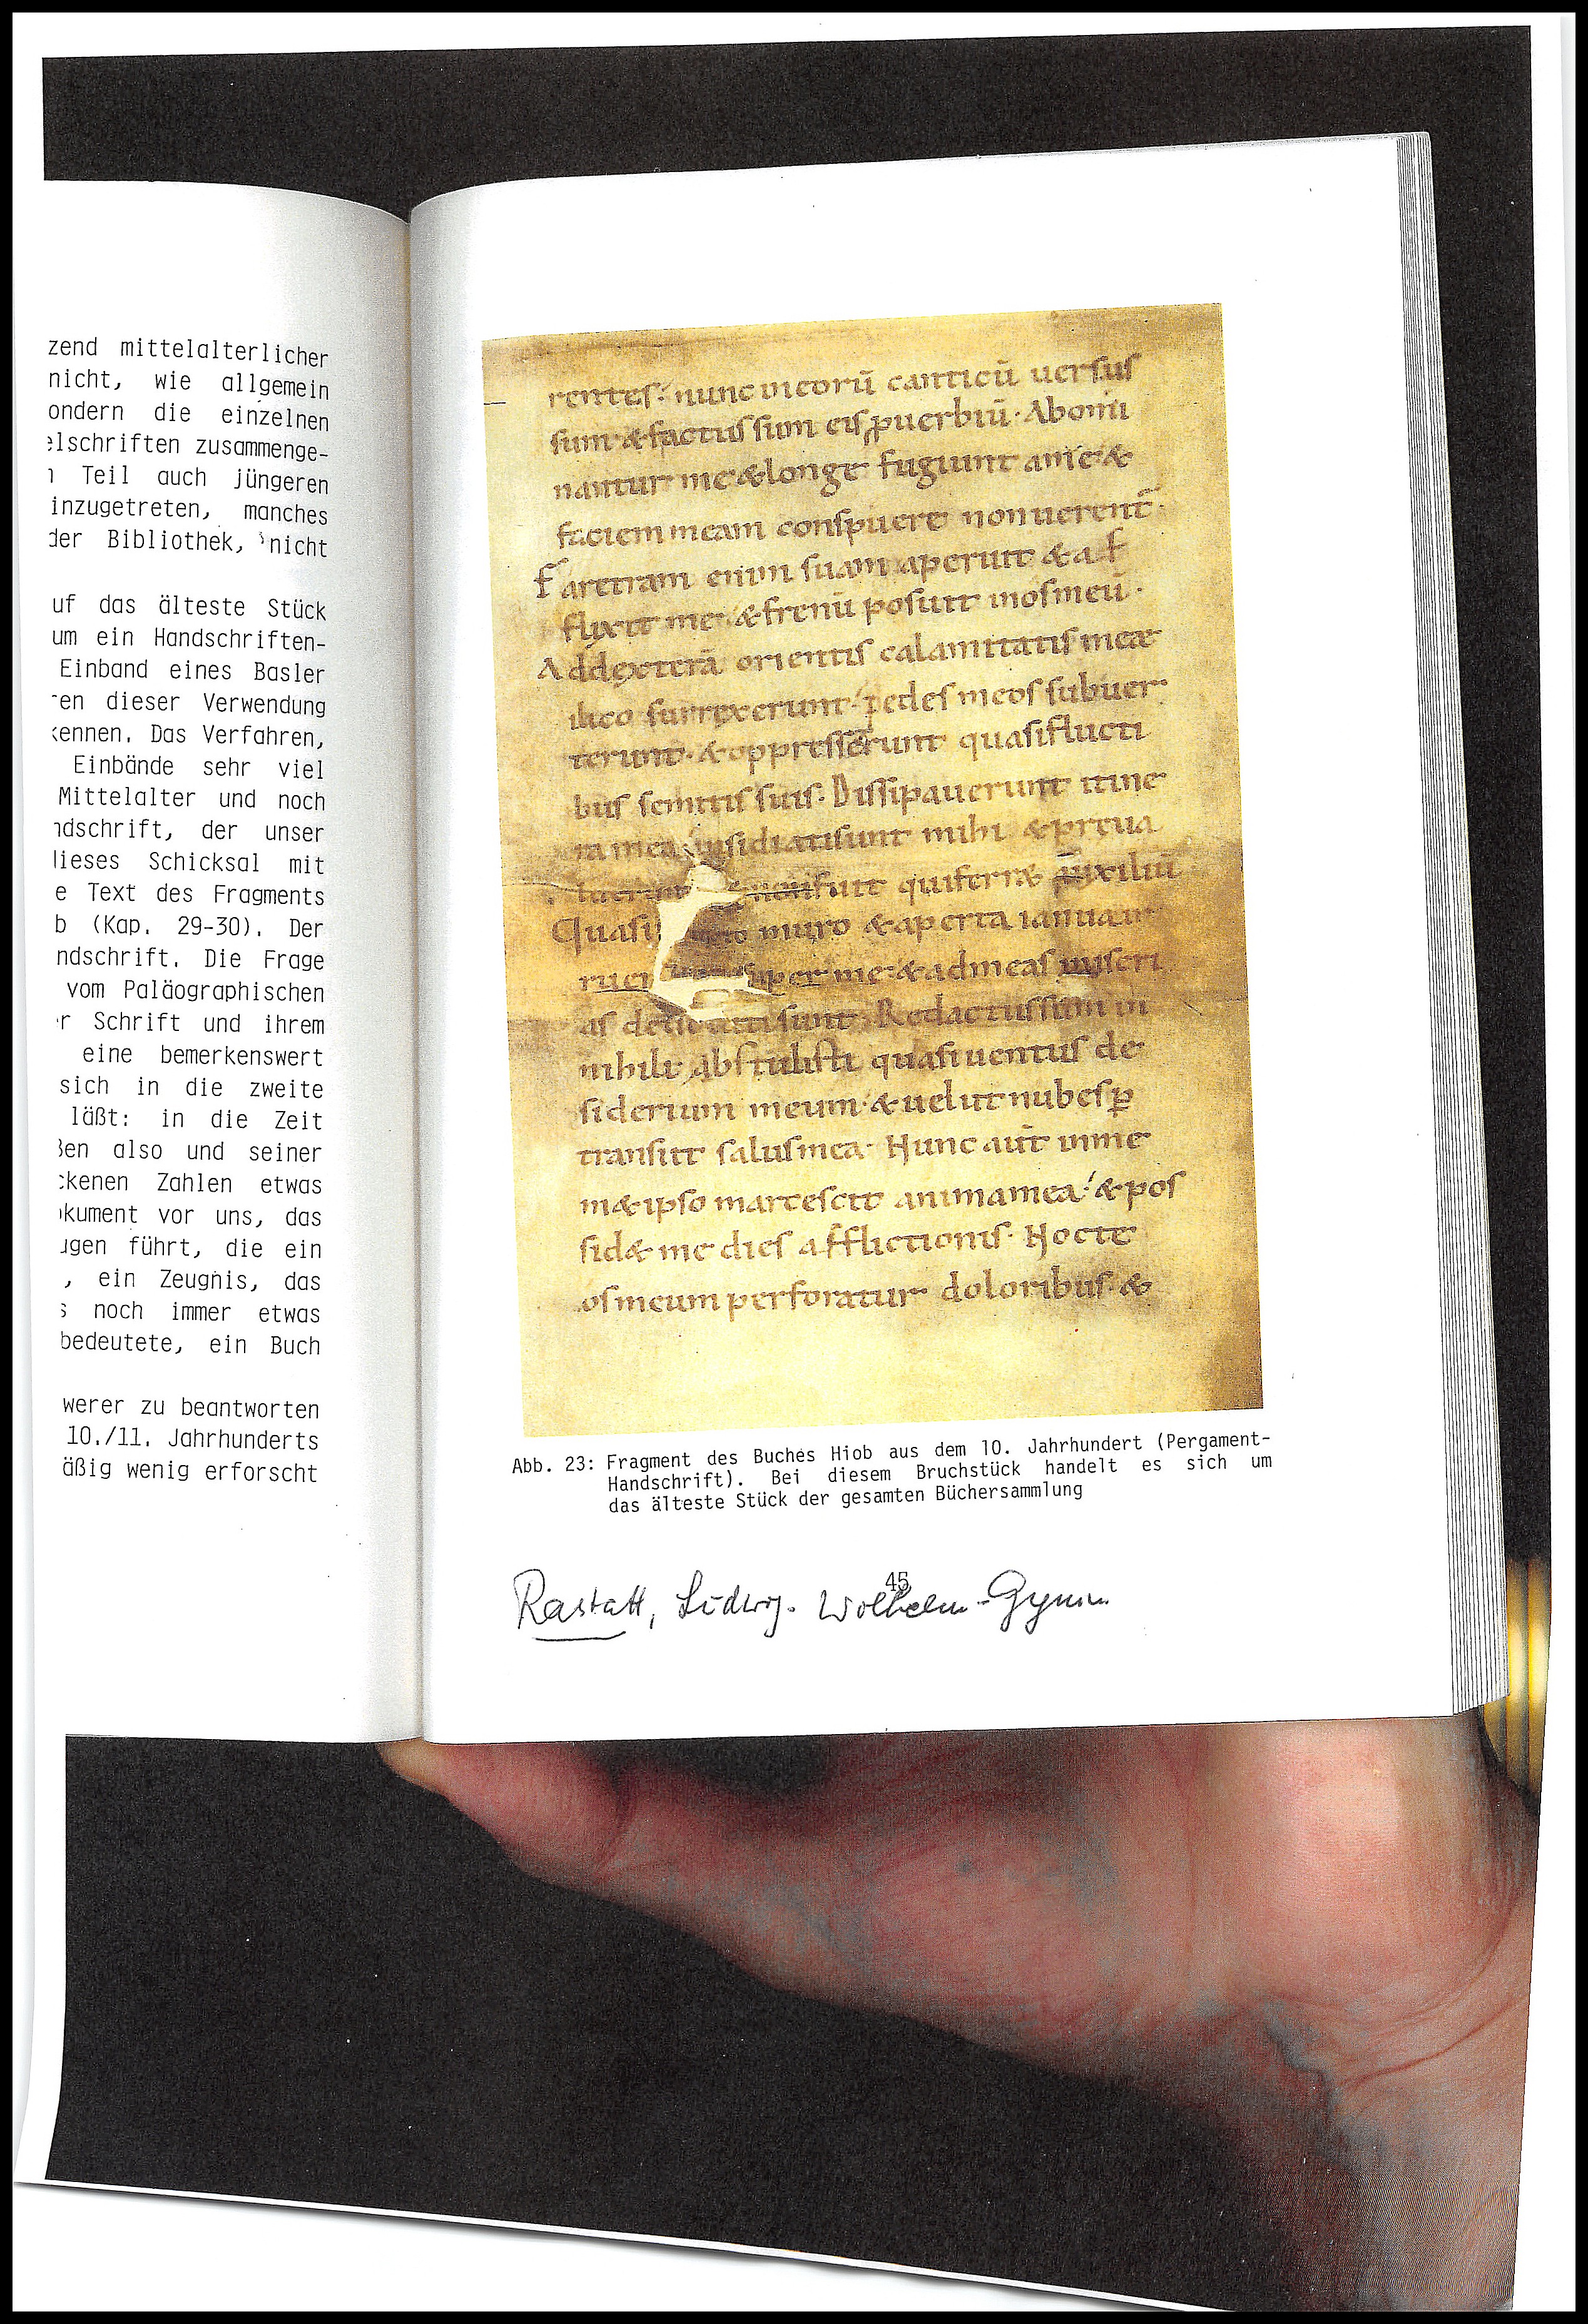 zend mittelalterlicher
nicht, wie allgemein
ondern die einzelnen
elschriften zusammenge-
n Teil auch jüngeren
inzugetreten, manches
der Bibliothek, nicht
uf das älteste Stück
um ein Handschriften-
Einband eines Basler
en dieser Verwendung
kennen. Das Verfahren,
Einbände sehr viel
Mittelalter und noch
ndschrift, der unser
dieses Schicksal mit
e Text des Fragments
b (Kap. 29-30). Der
ndschrift. Die Frage
vom Paläographischen
r Schrift und ihrem
eine bemerkenswert
sich in die zweite
läßt: in die Zeit
ßen also und seiner
ckenen Zahlen etwas
okument vor uns, das
ugen führt, die ein
, ein Zeugnis, das
s noch immer etwas
bedeutete, ein Buch
werer zu beantworten
10./11. Jahrhunderts
äßig wenig erforscht
rentes· nunc ineorū canticū uersus
sum &factus sum eis ꝓuerbiū· Abomi
nantur me &longe fugiunt ame &
faciem meam conspuere nonuerent̄·
Faretram enim suam aperuit & af
flixit me· &frenū posuit inosmeū·
Addexterā orientis calamitatis meae
ilico surrexerunt· pedes meos subuer
terunt· &oppresserunt quasifluctı
bus semitis suis· Dissipauerunt itine
ra mea insidiatisunt mihi &preua
fuit quiferr&  auxiliū
Quasi muro &aperta ianua ir
ruer super me· &admeas miseri
as sunt· Redactussum in
nihilū Abstulisti quasi uentus de
siderium meum· &uelut nubes ꝑ
transiit salusmea· Nunc aut̄ inme
m&ipso marcescit animamea· &pos
sid& me dies afflictionis· Nocte
osmeum perforatur doloribus· &
Abb. 23: Fragment des Buches Hiob aus dem 10. Jahrhundert (Pergament-
Handschrift). Bei diesem Bruchstück handelt es sich um
das älteste Stück der gesamten Büchersammlung
45
Rastatt, Ludwig-Wilhelm-Gymn.